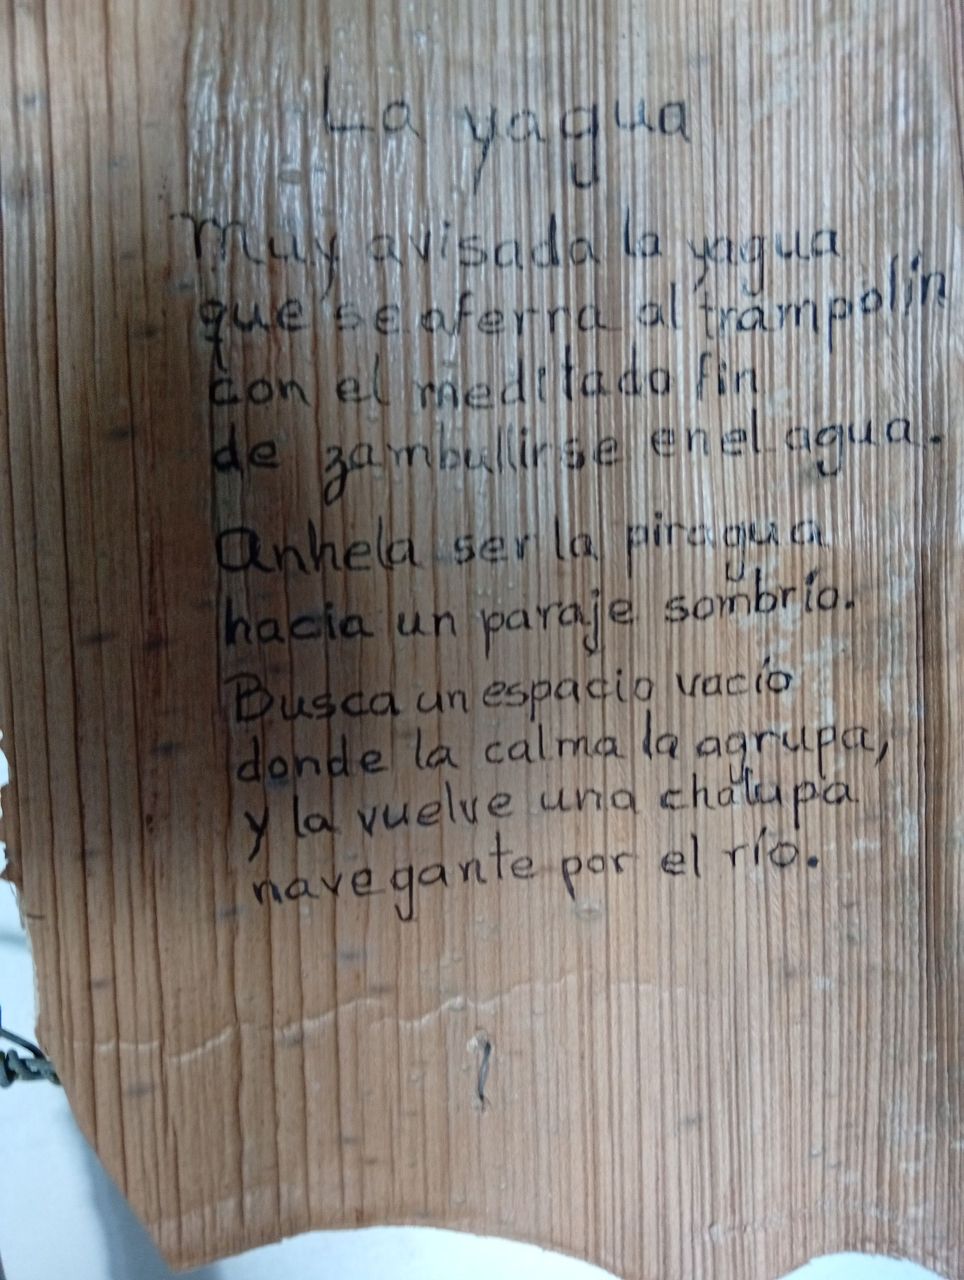 La yagua
Muy avisada la yagua
que se aferra al trampolín
con el meditado fin
de zambullirse en el agua.
Anhela ser la piragua
hacia un paraje sombrío.
Busca un espacio vacío
donde la calma la agrupa,
y la vuelve una chalupa
navegante por el río.
1